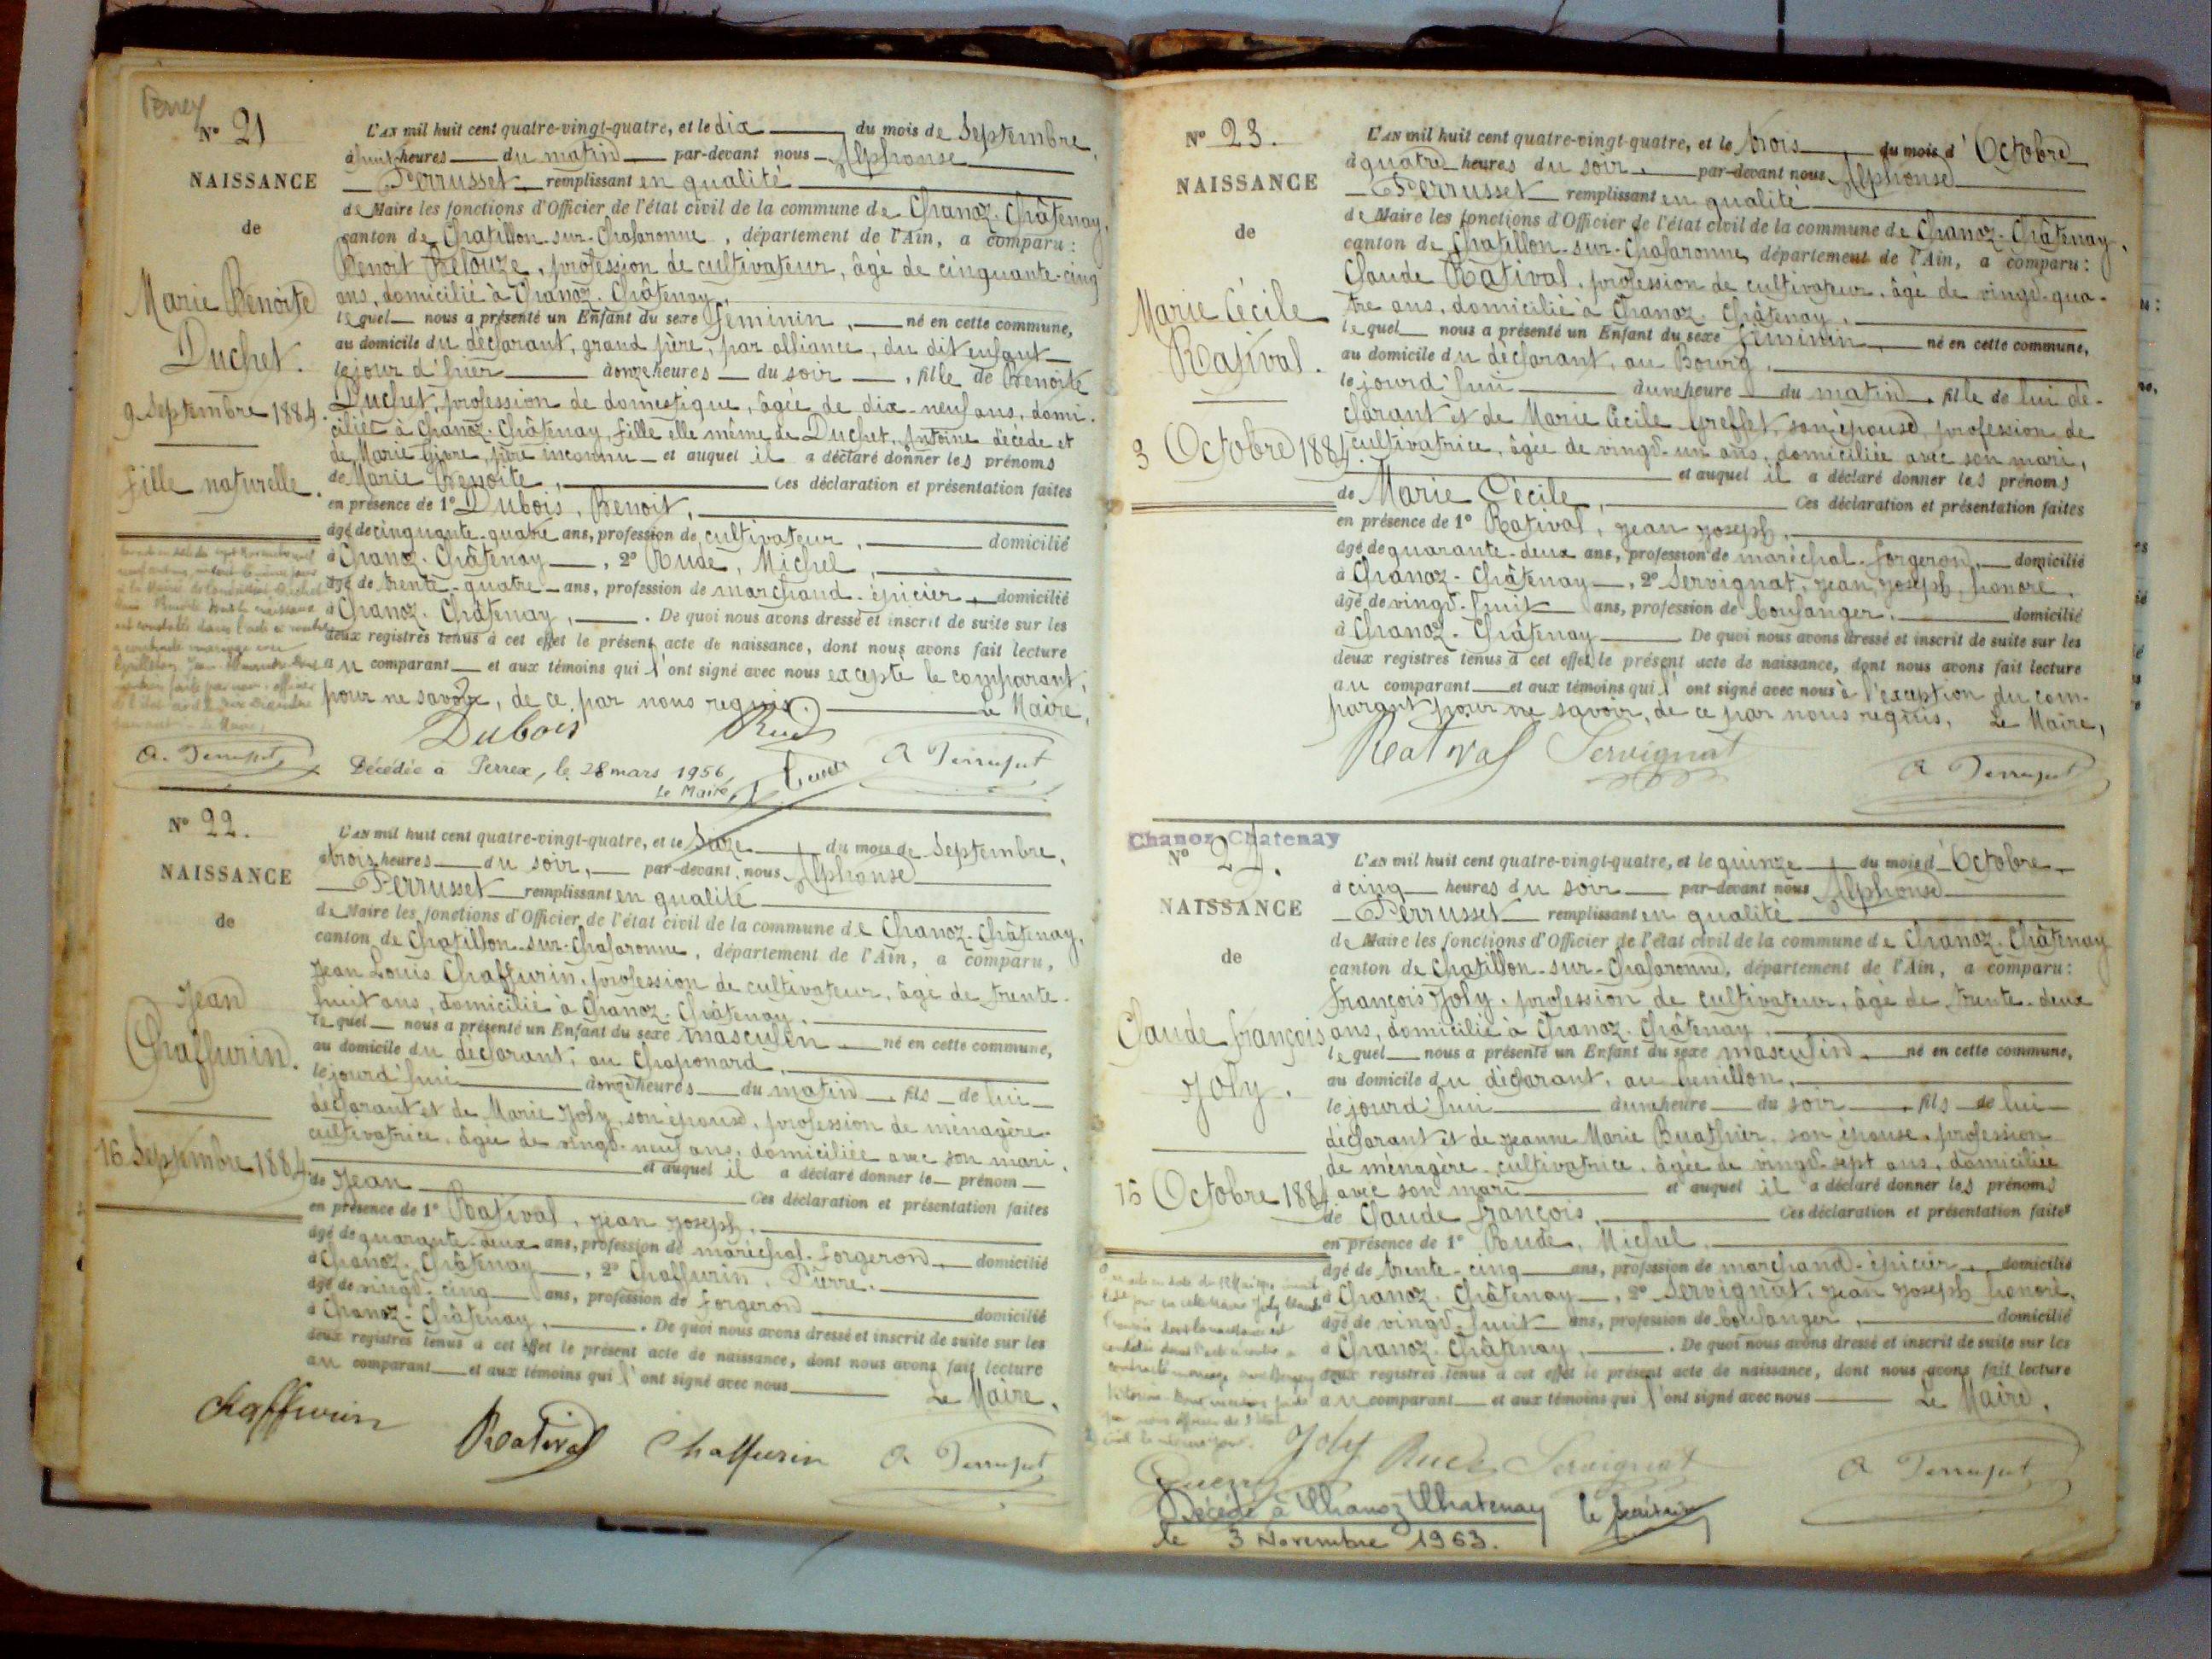 Perrex
N° 21
NAISSANCE
de
Marie Benoite
Duchet.
9 Septembre 1884.
fille naturelle.
L'AN mil huit cent quatre-vingt-quatre, et le dix du mois de Septembre,
à huit heures du matin par-devant nous Alphonse
Perrusset remplissant en qualité
de Maire les fonctions d'Officier de l'état civil de la commune de Chanoz-Châtenay,
canton de Chatillon-sur-Chalaronne, département de l'Ain, a comparu :
Benoit Velouze, profession de cultivateur, âgé de cinquante-cinq
ans, domicilié à Chanoz-Châtenay,
lequel nous a présenté un Enfant du sexe féminin, né en cette commune,
au domicile du déclarant, grand père, par alliance, du dit enfant
le jour d'hier à onze heures du soir, fille de Benoite
Duchet, profession de domestique, âgée de dix-neuf ans, domi-
ciliée à Chanoz-Châtenay, fille elle même de Duchet, Antoine décédé et
de Marie Givre, père inconnu et auquel il a déclaré donner les prénoms
de Marie Benoite, Ces déclaration et présentation faites
en présence de 1° Dubois, Benoit,
âgé de cinquante-quatre ans, profession de cultivateur, domicilié
à Chanoz-Châtenay, 2° Rude, Michel,
âgé de trente-quatre ans, profession de marchand-épicier, domicilié
à Chanoz-Châtenay, . De quoi nous avons dressé et inscrit de suite sur les
deux registres tenus à cet effet le présent acte de naissance, dont nous avons fait lecture
au comparant et aux témoins qui l'ont signé avec nous excepté le comparant,
pour ne savoir, de ce par nous requis. Le Maire,
Dubois Rude A Perrusset
A. Perrusset
Décédée à Perrex, le 28 mars 1956
Le Maire,
N° 22.
NAISSANCE
de
Jean
Chaffurin.
16 Septembre 1884.
L'AN mil huit cent quatre-vingt-quatre, et le seize du mois de Septembre,
à trois heures du soir, par-devant nous Alphonse
Perrusset remplissant en qualité
de Maire les fonctions d'Officier de l'état civil de la commune de Chanoz-Châtenay,
canton de Chatillon-sur-Chalaronne, département de l'Ain, a comparu,
Jean Louis Chaffurin, profession de cultivateur, âgé de trente-
huit ans, domicilié à Chanoz-Châtenay,
lequel nous a présenté un Enfant du sexe masculin né en cette commune,
au domicile du déclarant, au Chaponard,
le jourd'hui à onze heures du matin, fils de lui
déclarant et de Marie Joly, son épouse, profession de ménagère-
cultivatrice, âgée de vingt-neuf ans, domiciliée avec son mari,
et auquel il a déclaré donner le prénom
de Jean Ces déclaration et présentation faites
en présence de 1° Rativat, Jean Joseph,
âgé de quarante-deux ans, profession de maréchal-forgeron, domicilié
à Chanoz-Châtenay, 2° Chaffurin, Pierre,
âgé de vingt-cinq ans, profession de forgeron domicilié
à Chanoz-Châtenay, . De quoi nous avons dressé et inscrit de suite sur les
deux registres tenus à cet effet le présent acte de naissance, dont nous avons fait lecture
au comparant et aux témoins qui l'ont signé avec nous
Le Maire,
Chaffurin Rativat Chaffurin A Perrusset
N° 23.
NAISSANCE
de
Marie Cécile
Rativat.
3 Octobre 1884.
L'AN mil huit cent quatre-vingt-quatre, et le trois du mois d'Octobre
à quatre heures du soir, par-devant nous Alphonse
Perrusset remplissant en qualité
de Maire les fonctions d'Officier de l'état civil de la commune de Chanoz-Châtenay,
canton de Chatillon-sur-Chalaronne, département de l'Ain, a comparu :
Claude Rativat, profession de cultivateur, âgé de vingt-qua-
tre ans, domicilié à Chanoz-Châtenay,
lequel nous a présenté un Enfant du sexe féminin, né en cette commune,
au domicile du déclarant, au Bourg,
le jourd'hui à une heure du matin, fille de lui dé-
clarant et de Marie Cécile Greffet, son épouse, profession de
cultivatrice, âgée de vingt-un ans, domiciliée avec son mari,
et auquel il a déclaré donner les prénoms
de Marie Cécile, Ces déclaration et présentation faites
en présence de 1° Rativat, Jean Joseph,
âgé de quarante-deux ans, profession de maréchal-forgeron, domicilié
à Chanoz-Châtenay, 2° Servignat, Jean Joseph, honoré,
âgé de vingt-huit ans, profession de boulanger, domicilié
à Chanoz-Châtenay De quoi nous avons dressé et inscrit de suite sur les
deux registres tenus à cet effet le présent acte de naissance, dont nous avons fait lecture
au comparant et aux témoins qui l'ont signé avec nous à l'exception du com-
parant pour ne savoir, de ce par nous requis, Le Maire,
Rativat Servignat A Perrusset
Chanoz-Chatenay
N° 24.
NAISSANCE
de
Claude François
Joly.
15 Octobre 1884
L'AN mil huit cent quatre-vingt-quatre, et le quinze du mois d'Octobre
à cinq heures du soir par-devant nous Alphonse
Perrusset remplissant en qualité
de Maire les fonctions d'Officier de l'état civil de la commune de Chanoz-Châtenay
canton de Chatillon-sur-Chalaronne, département de l'Ain, a comparu :
François Joly, profession de cultivateur, âgé de trente-deux
ans, domicilié à Chanoz-Châtenay,
lequel nous a présenté un Enfant du sexe masculin, né en cette commune,
au domicile du déclarant, au Genillon,
le jourd'hui à une heure du soir, fils de lui
déclarant et de Jeanne Marie Buathier, son épouse, profession
de ménagère-cultivatrice, âgée de vingt-sept ans, domiciliée
avec son mari et auquel il a déclaré donner les prénoms
de Claude François, Ces déclaration et présentation faites
en présence de 1° Rude, Michel,
âgé de trente-cinq ans, profession de marchand-épicier, domicilié
à Chanoz-Châtenay, 2° Servignat, Jean Joseph honoré,
âgé de vingt-huit ans, profession de boulanger, domicilié
à Chanoz-Châtenay, . De quoi nous avons dressé et inscrit de suite sur les
deux registres tenus à cet effet le présent acte de naissance, dont nous avons fait lecture
au comparant et aux témoins qui l'ont signé avec nous Le Maire,
Joly Rude Servignat A Perrusset
Décédé à Chanoz Chatenay
le 3 Novembre 1963.